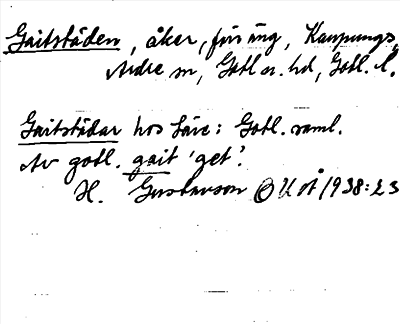 Gaitstäden, åker, förr äng, Kaupungs,
Ardre sn, Gotl. n. hd, Gotl. l.
Gaitstädar hos Säve: Gotl. saml.
Av gotl. gait 'get'.
H. Gustavson OUÅ 1938:23